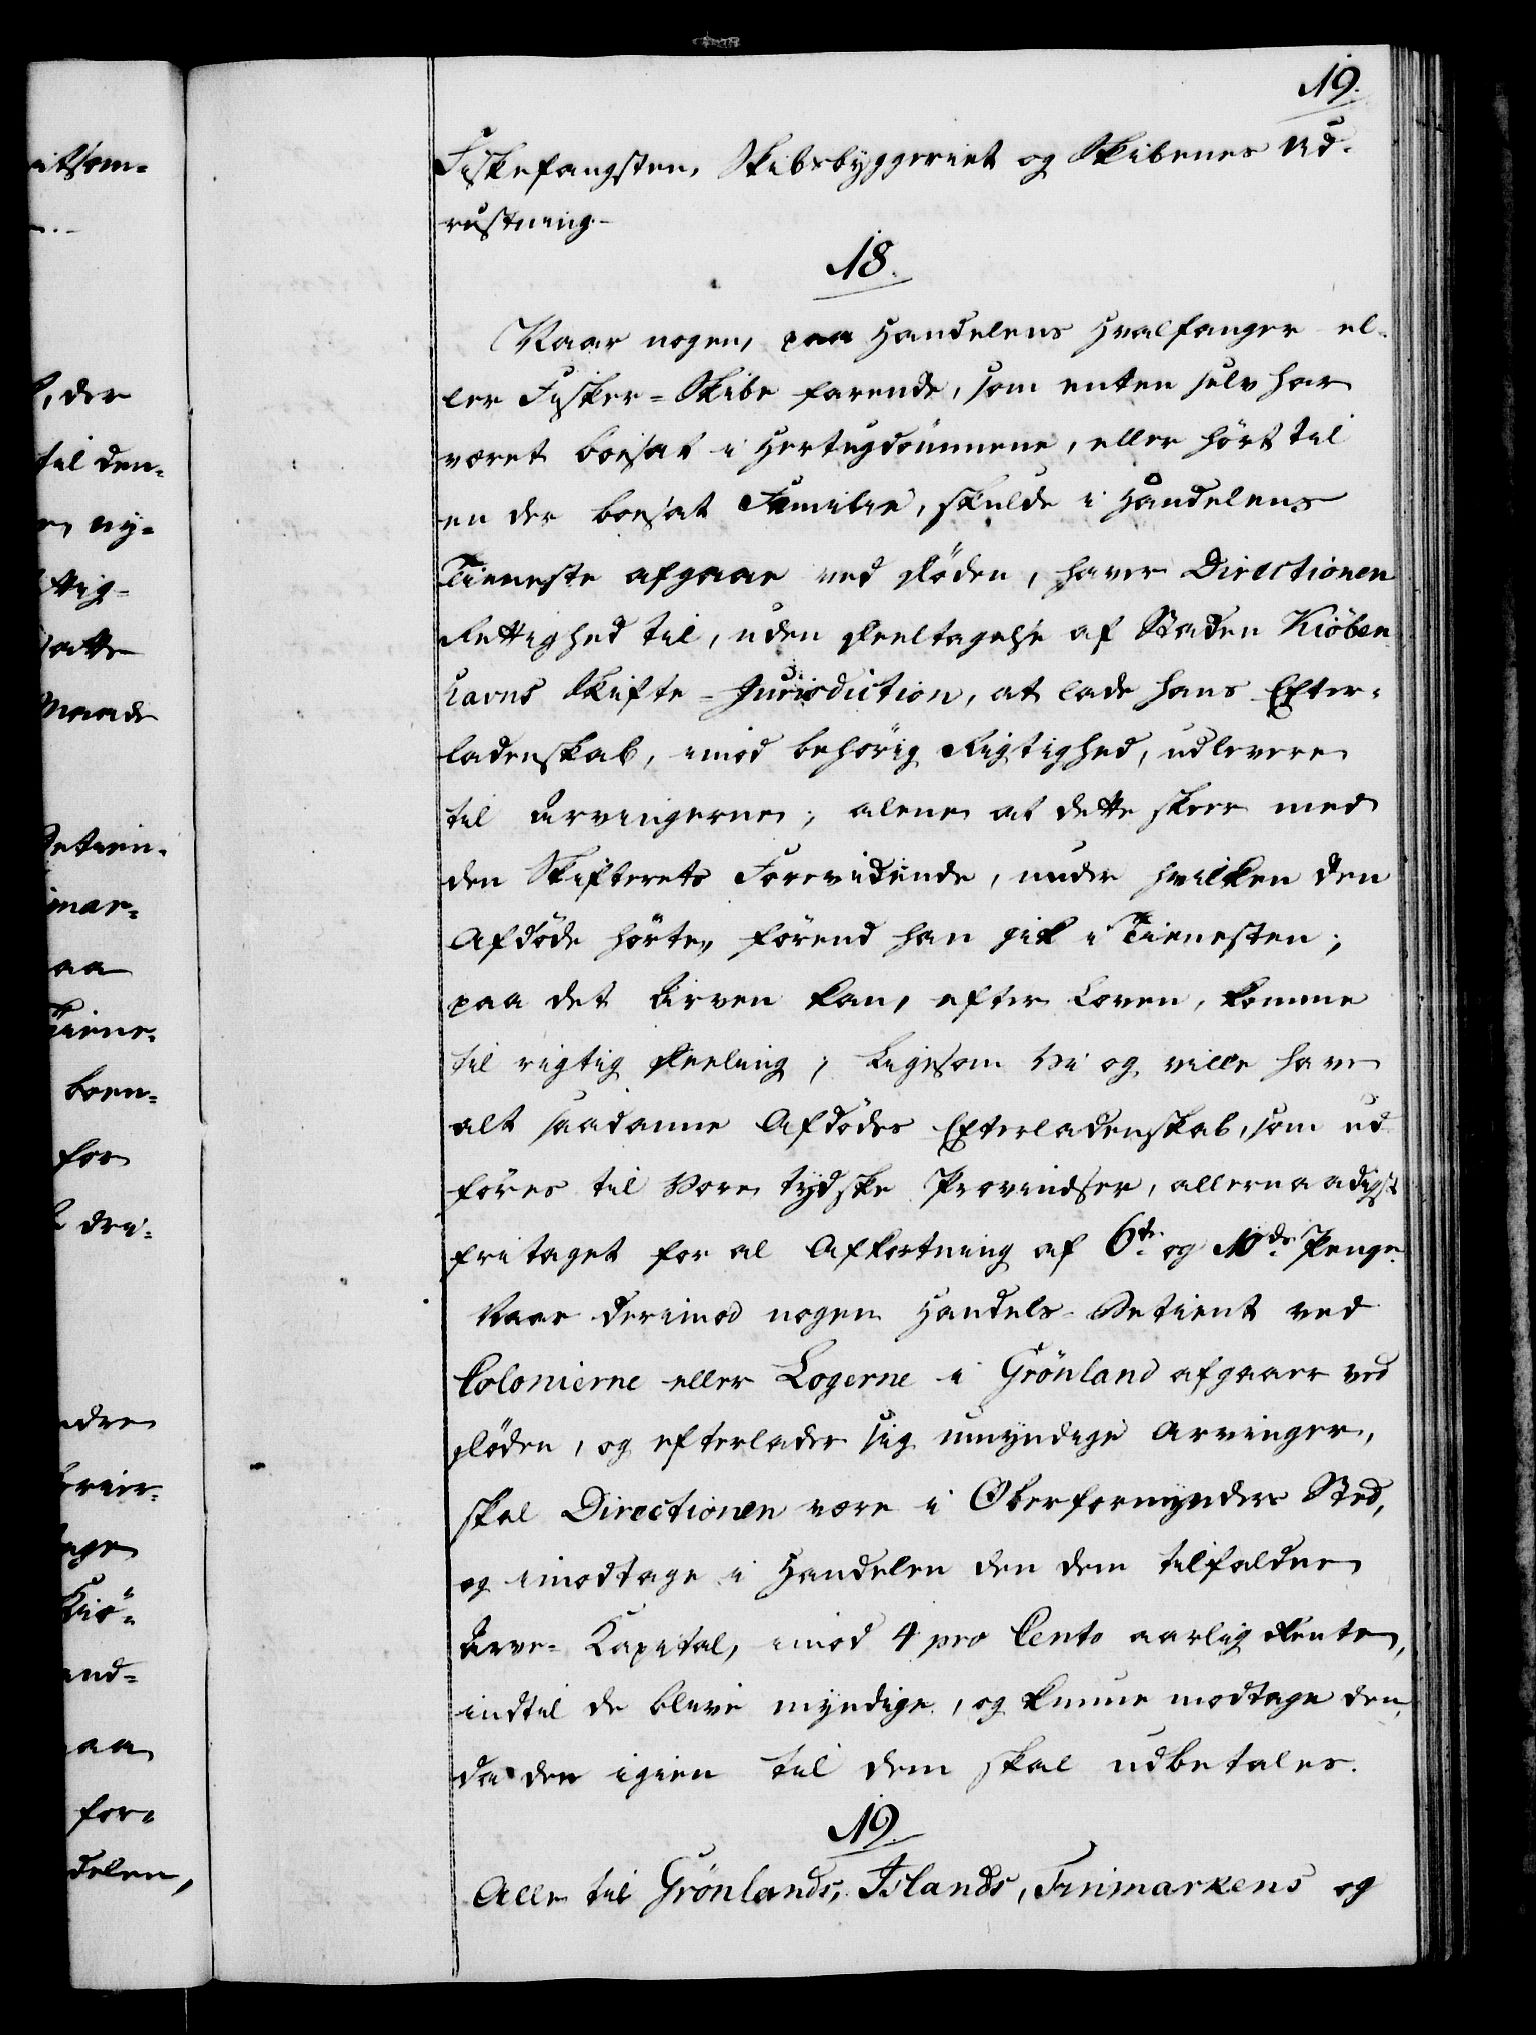 19.
Fiskefangsten, Skibsbyggeriet og Skibenes Ud-
rustning.-
18.
Naar nogen, paa Handelens Hvalfanger el-
ler Fisker-Skibe farende, som enten selv har
været boesat i Hertugdömmene, eller hört til
en der boesat Familie, skulde i Handelens
Tieneste afgaae ved Döden, haver Directionen
Rettighed til, uden Deeltagelse af Staden Kiöben-
havns Skifte-Jurisdiction, at lade hans Efter-
ladenskab, imod behörig Rigtighed, udlevere
til Arvingerne; alene at dette skeer med
den Skifterets Forevidende, under hvilken den
Afdöde hörte, förend han gik i Tienesten;
paa det Arven kan, efter Loven, komme
til rigtig Deeling; ligesom Vi og ville have
alt saadanne Afdödes Efterladenskab, som ud-
föres til Vore tydske Provindser, allernaadigst
fritaget for al Afkortning af 6te og 10de Penge.
Naar derimod nogen Handels-Betient ved
Colonierne eller Logerne i Grönland afgaaer ved
Döden, og efterlader sig umyndige Arvinger,
skal Directionen være i Oberformynders Sted,
og imodtage i Handelen den dem tilfaldne
Arve-Kapital, imod 4 pro Cento aarlig Rente,
indtil de blive myndige, og kunne modtage den,
da den igien til dem skal udbetales.
19.
Alle til Grönlands, Islands, Finmarkens og
itsom-
, der
til den-
ny-
ttig-
satte
Maade
Betien-
mar-
aa
Tiene-
boen-
for
dri-
andre
Kiö-
and-
aa
for-
delen,